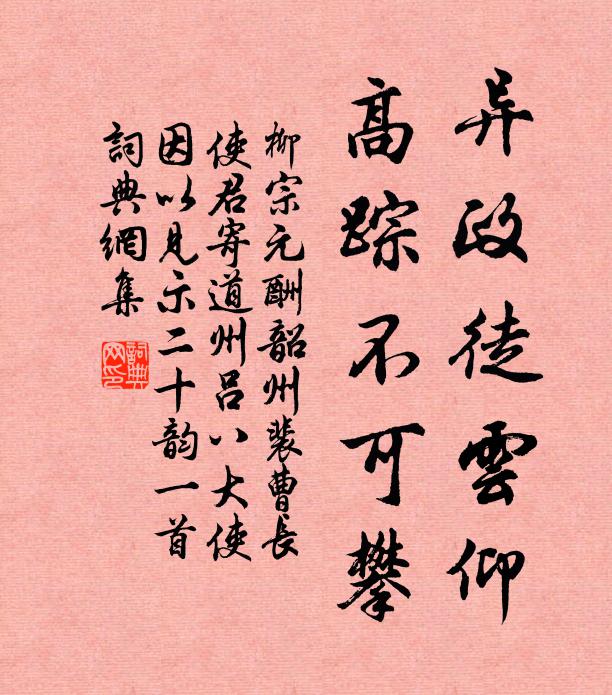 异政徒雲仰
高踪不可攀
柳宗元酬韶州裴曹長
使君寄道州吕八大使
因以見示二十韵一首
詞典網集
詞典
网印